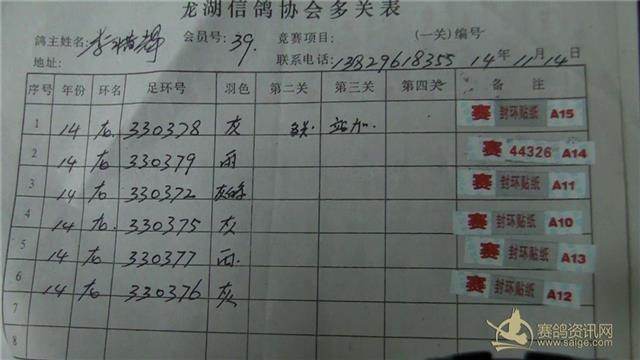 龙湖信鸽协会多关表
鸽主姓名: 李 辉 会员号: 39. 竞赛项目: (一关)编号
地址: 联系电话: 13829618355 14年11月14日
序号 年份 环名 足环号 羽色 第二关 第三关 第四关 备注
1 14 龙 330378 灰 赛 封环贴纸 A15
2 14 龙 330379 雨 赛 44326 A14
3 14 龙 330372 赛 封环贴纸 A11
4 14 龙 330375 灰 赛 封环贴纸 A10
5 14 龙 330377 雨 赛 封环贴纸 A13
6 14 龙 330376 灰 赛 封环贴纸 A12
7
8
赛鸽资讯网
www.saige.com